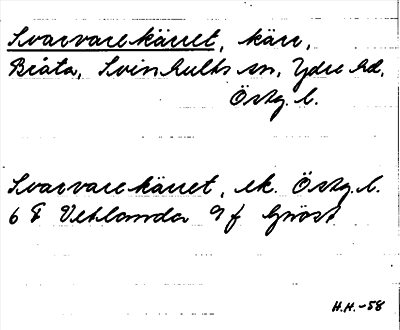 Svarvarekärret, kärr,
Bråta, Svinhults sn, Ydre hd,
Östg. l.
Svarvarekärret, ek. Östg. l.
6 F Vetlanda 9 f
H.H. -58